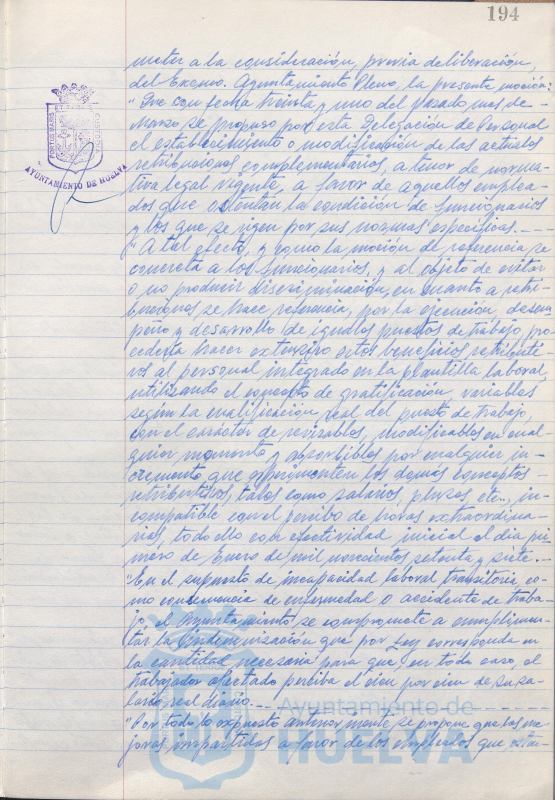 194
meter a la consideración, previa deliberación,
del Excmo. Ayuntamiento Pleno, la presente moción:
"Que con fecha treinta y uno del pasado mes de
Marzo se propuso por esta Delegación de Personal
el establecimiento o modificación de las actuales
retribuciones complementarias, a tenor de norma-
tiva legal vigente, a favor de aquellos emplea-
dos que ostentan la condición de funcionarios
y los que se rigen por sus normas específicas.
"A tal efecto, y como la moción de referencia se
concreta a los funcionarios, y al objeto de evitar
o no producir discriminación, en cuanto a retri-
buciones se hace referencia, por la ejecución, desem
peño y desarrollo de iguales puestos de trabajo, pro
cedería hacer extensivo estos beneficios retributi
vos al personal integrado en la plantilla laboral,
utilizando el concepto de gratificación, variables
según la cualificación real del puesto de trabajo,
con el carácter de revisables, modificables en cual
quier momento y absorbibles por cualquier in-
cremento que experimenten los demás conceptos
retributivos, tales como salarios, pluses, etc., in-
compatible con el percibo de horas extraordina-
rias, todo ello con efectividad inicial el día pri
mero de Enero de mil novecientos setenta y siete.
"En el supuesto de incapacidad laboral transitoria co-
mo consecuencia de enfermedad o accidente de traba-
jo, el Ayuntamiento se compromete a cumplimen-
tar la indemnización que por Ley corresponda en
la cantidad necesaria para que en todo caso, el
trabajador afectado perciba el cien por cien de su sa-
lario real diario.
"Por todo lo expuesto anteriormente se propone que las me
joras impartidas a favor de los empleados que osten-
AYUNTAMIENTO DE HUELVA
Ayuntamiento de
HUELVA